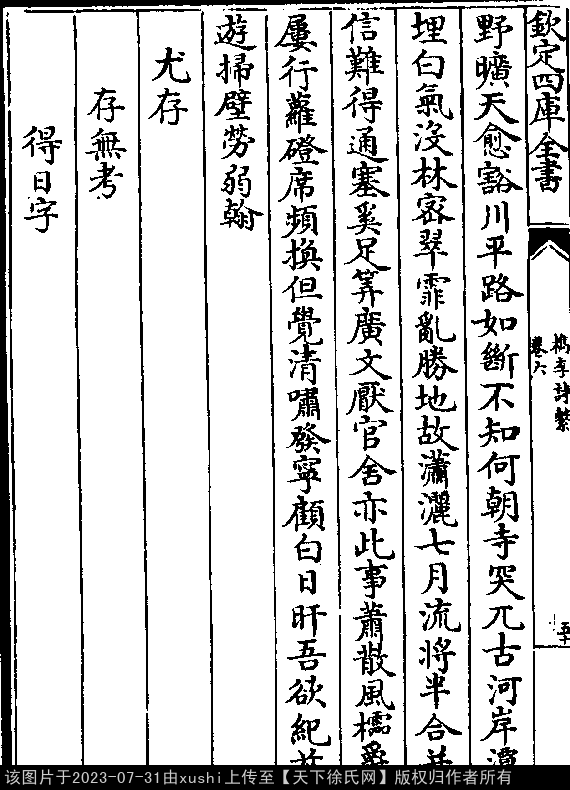 欽定四庫全書
檇李詩繫
卷六
五十
野曠天愈豁川平路如斷不知何朝寺突兀古河岸潭
埋白氣沒林密翠霏亂勝地故瀟灑七月流將半合并
信難得通塞奚足算廣文厭官舍亦此事蕭散風櫺爵
屢行蘿磴席頻換但覺清嘯發寧顧白日旰吾欲紀茲
遊掃壁勞弱翰
尤存
存無考
得日字
该图片于2023-07-31由xushi上传至【天下徐氏网】版权归作者所有